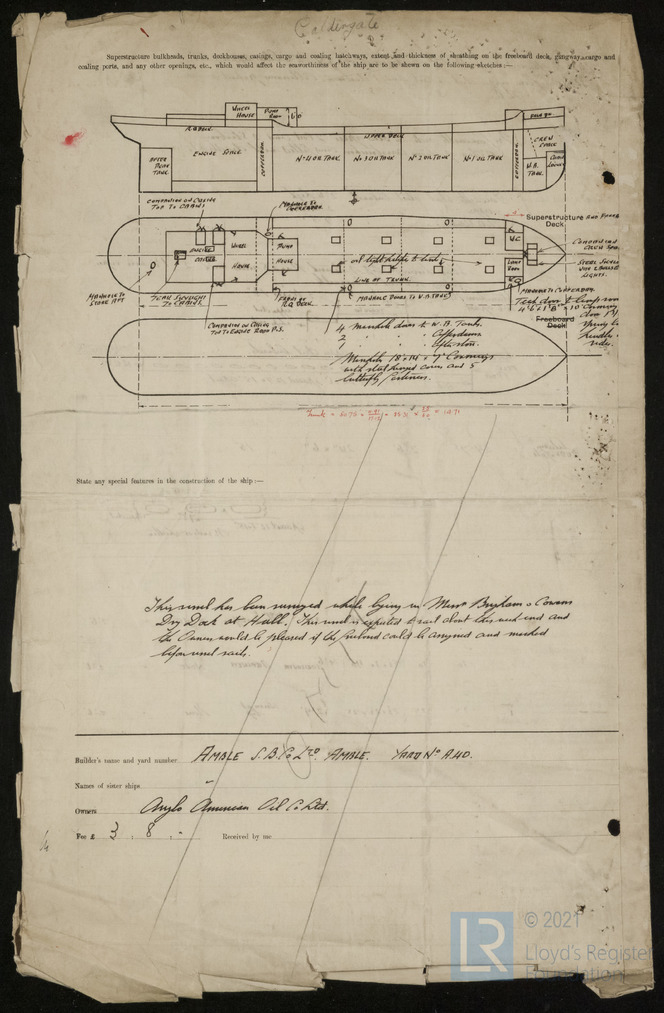 Caldergate
Superstructure bulkheads, trunks, deckhouses, casings, cargo and coaling hatchways, extent and thickness of sheathing on the freeboard deck, gangway cargo and
coaling ports, and any other openings, etc., which would affect the seaworthiness of the ship are to be shewn on the following sketches:—
WHEEL HOUSE
PUMP
R.Q. DECK
UPPER DECK
ENGINE SPACE
AFTER PEAK TANK
COFFERDAM
No 4 OIL TANK
No 3 OIL TANK
No 2 OIL TANK
No 1 OIL TANK
COFFERDAM
CREW SPACE
W.B. TANK
CHAIN LOCKER
COMPANION ON CASING TOP TO CABINS
MANHOLE TO COFFERDAM
Superstructure
Deck.
ENGINE CASING
WHEEL HOUSE
PUMP HOUSE
W.C.
LAMP ROOM
oil tight hatches to tanks
LINE OF TRUNK.
MANHOLE TO STORE AFT
TEAK SKYLIGHT TO CABINS
COMPANION ON CASING TOP TO ENGINE ROOM P.S.
R.Q. DECK
MANHOLE DOORS TO W.B. TANKS
MANHOLE TO COFFERDAM
COMPANION
CREW SPACE
Teak door to lamp room
4'6 x 1'8" x 10" Coaming
Freeboard
Deck
4 Manhole doors to W.B. Tanks.
2 " " " Cofferdams
1 " " " after store.
Manholes 18" x 14" x 7" Coamings
with steel hinged covers and 5
butterfly fasteners.
State any special features in the construction of the ship:—
This vessel has been surveyed while lying in Messrs Brigham & Cowans
Dry Dock at Hull. This vessel is expected to sail about this week-end and
the Owners would be pleased if the freeboard could be assigned and marked
before vessel sails.
Builder's name and yard number AMBLE S.B. Co LTD. AMBLE. YARD No A40.
Names of sister ships "
Owners Anglo American Oil Co Ltd.
Fee £ 3 : 8 : " Received by me
LR
© 2021
Lloyd's Register
Foundation